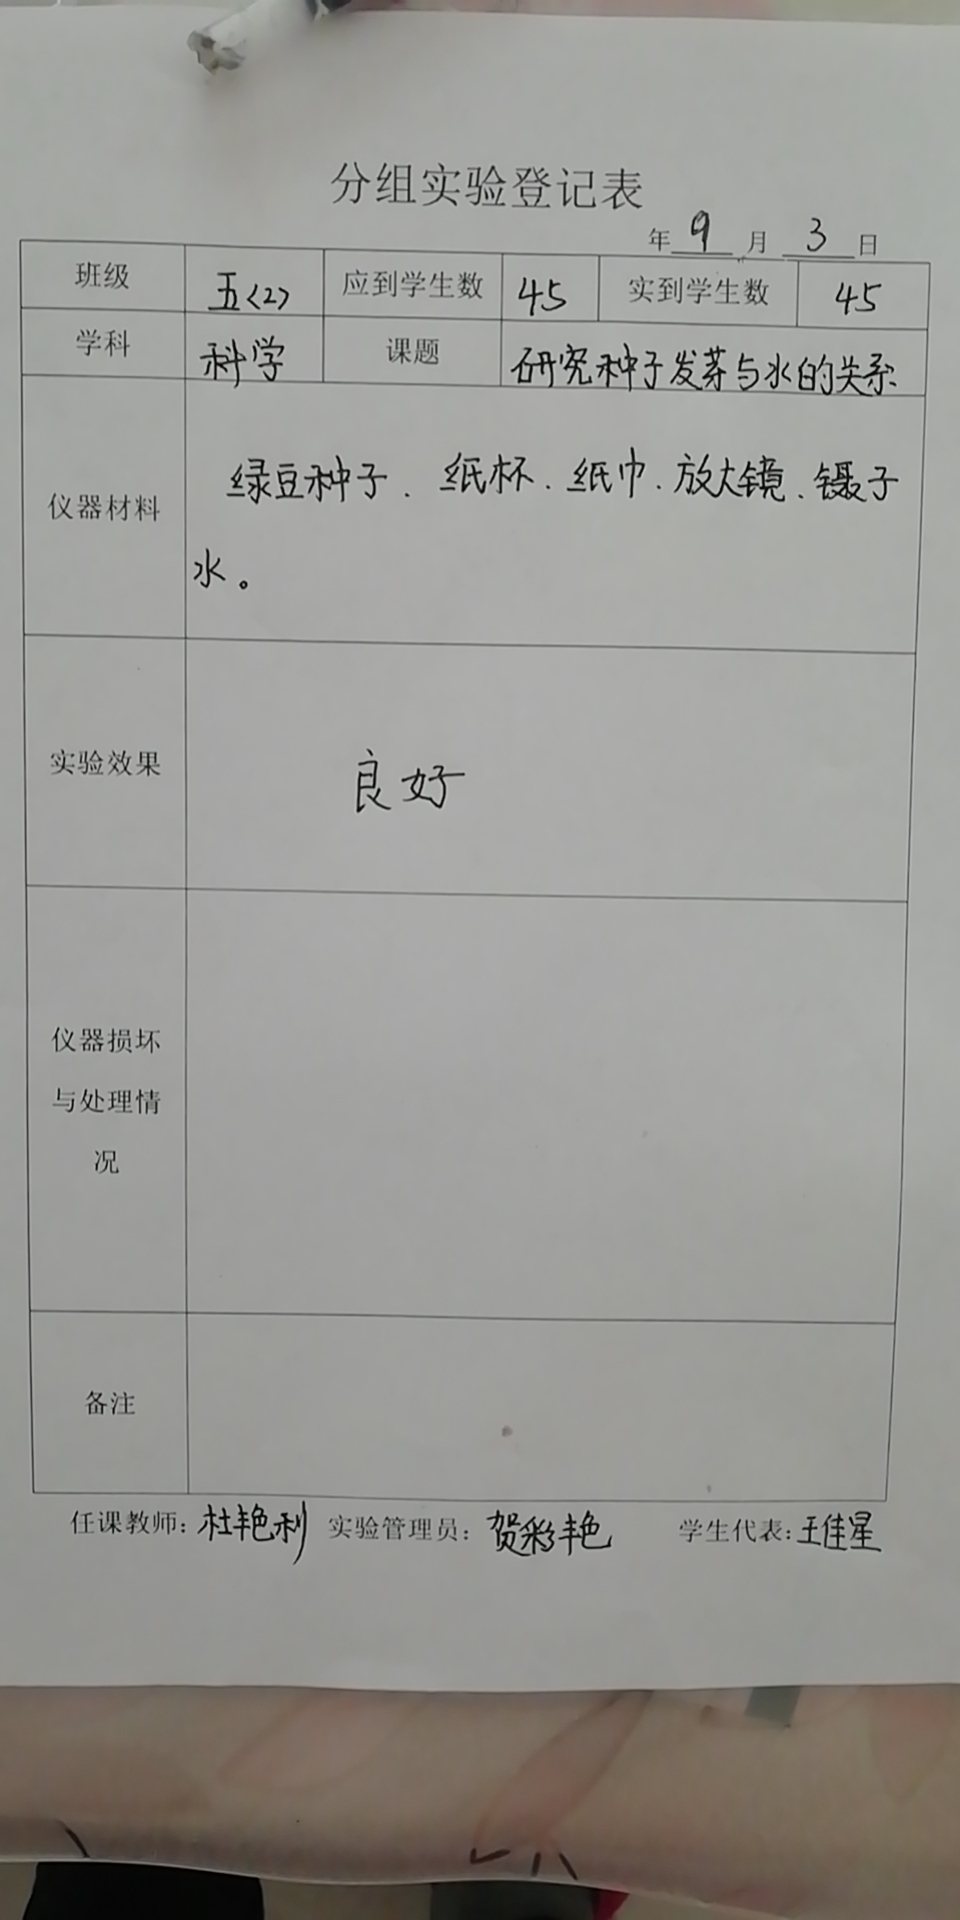 分组实验登记表
年 9 月 3 日
班级 五(2) 应到学生数 45 实到学生数 45
学科 科学 课题 研究种子发芽与水的关系
仪器材料 绿豆种子、纸杯、纸巾、放大镜、镊子
水。
实验效果 良好
仪器损坏
与处理情
况
备注
任课教师:杜艳利 实验管理员:贺彩艳 学生代表:王佳星